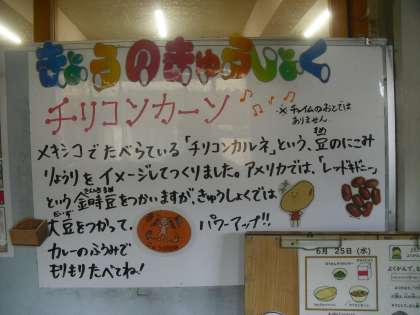 きょうのきゅうしょく
チリコンカーン
※チャイムのおとでは
ありません
メキシコでたべらている「チリコンカルネ」という、豆のにこみ
まめ
りょうりをイメージしてつくりました。アメリカでは、「レッドキドニー」
という金時豆をつかいますが、きゅうしょくでは
きんときまめ
大豆をつかって、パワーアップ!!
だいず
カレーのふうみで
もりもりたべてね!
6月25日(水)